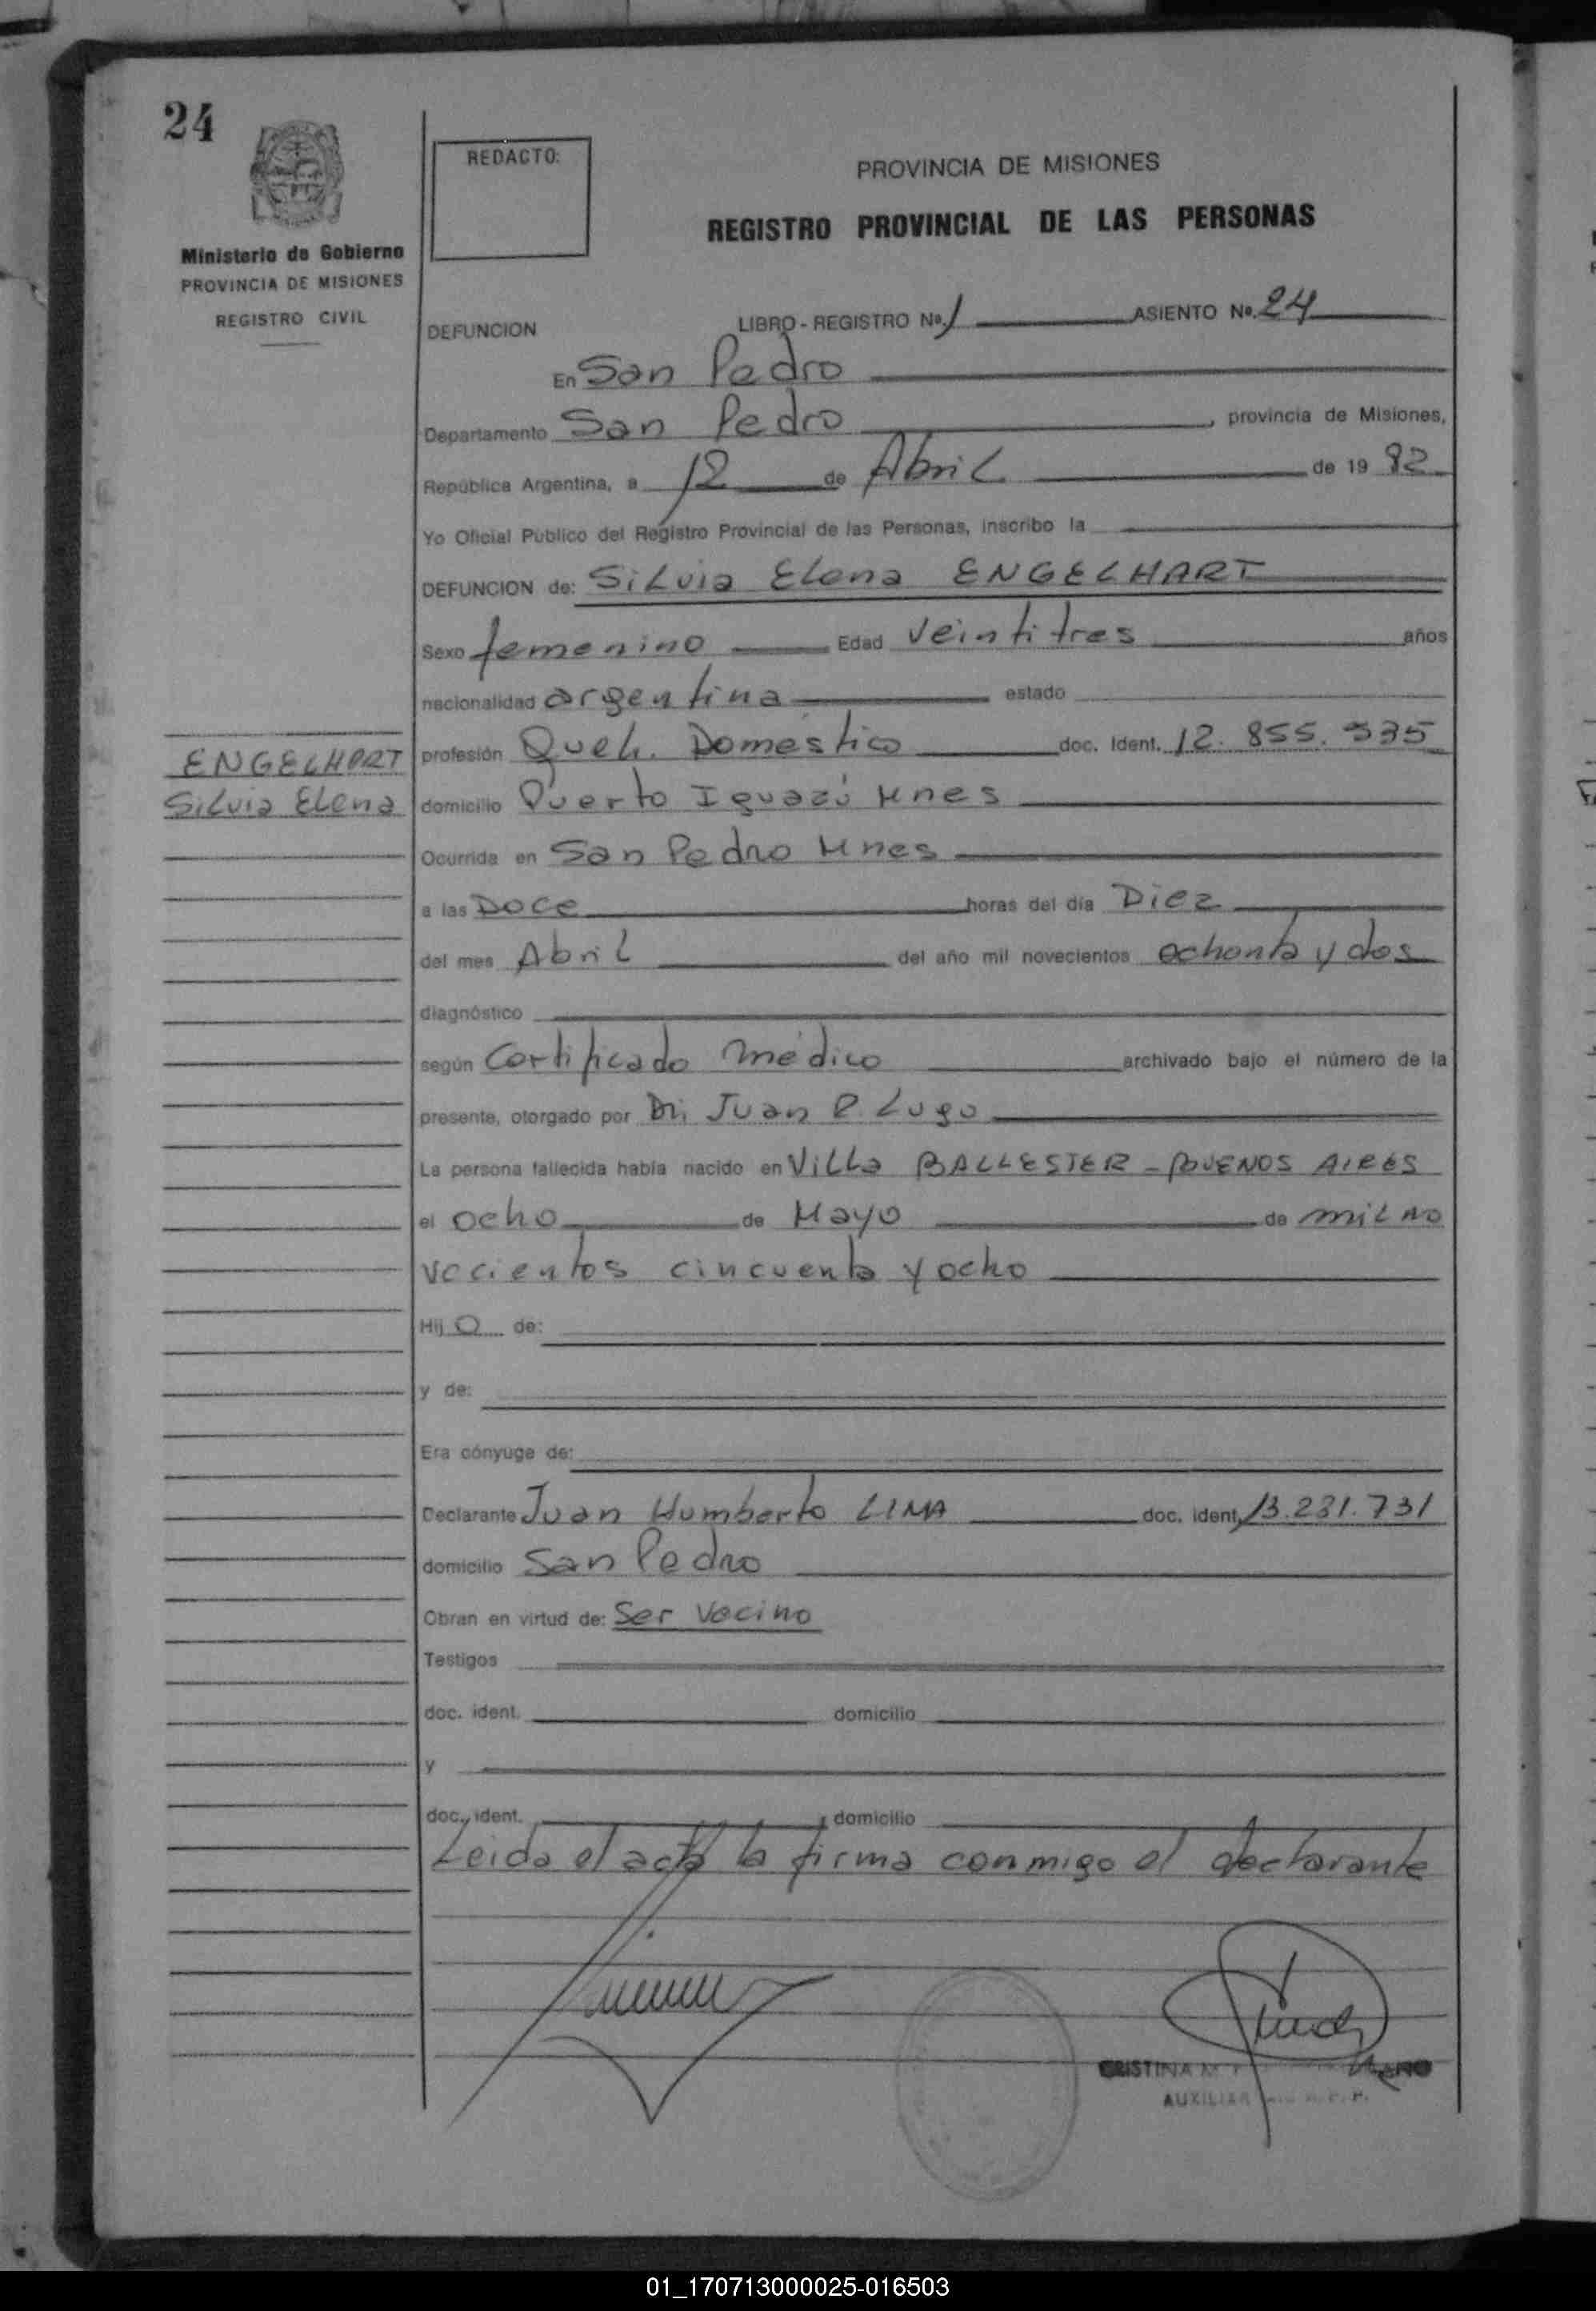 24
REDACTO:
PROVINCIA DE MISIONES
REGISTRO PROVINCIAL DE LAS PERSONAS
Ministerio de Gobierno
PROVINCIA DE MISIONES
REGISTRO CIVIL
DEFUNCION LIBRO - REGISTRO Nº. 1 ASIENTO Nº. 24
En San Pedro
Departamento San Pedro, provincia de Misiones,
República Argentina, a 12 de Abril de 19 82
Yo Oficial Público del Registro Provincial de las Personas, inscribo la
DEFUNCION de: Silvia Elena ENGELHART
Sexo femenino Edad veintitres años
nacionalidad argentina estado
ENGELHART
Silvia Elena
profesión Queh. Domestico doc. Ident. 12. 855. 535
domicilio Puerto Iguazú Mnes
Ocurrida en San Pedro Mnes
a las Doce horas del día Diez
del mes Abril del año mil novecientos ochenta y dos
diagnóstico
según Certificado médico archivado bajo el número de la
presente, otorgado por Dr. Juan P. Lugo
La persona fallecida había nacido en Villa BALLESTER - BUENOS AIRES
el ocho de Mayo de mil no
vecientos cincuenta y ocho
Hij o de:
y de:
Era cónyuge de:
Declarante Juan Humberto LIMA doc. ident. 13.231.731
domicilio San Pedro
Obran en virtud de: Ser Vecino
Testigos
doc. ident. domicilio
y
doc. ident. domicilio
Leida el acta la firma conmigo el declarante
CRISTINA M
AUXILIAR
01_170713000025-016503